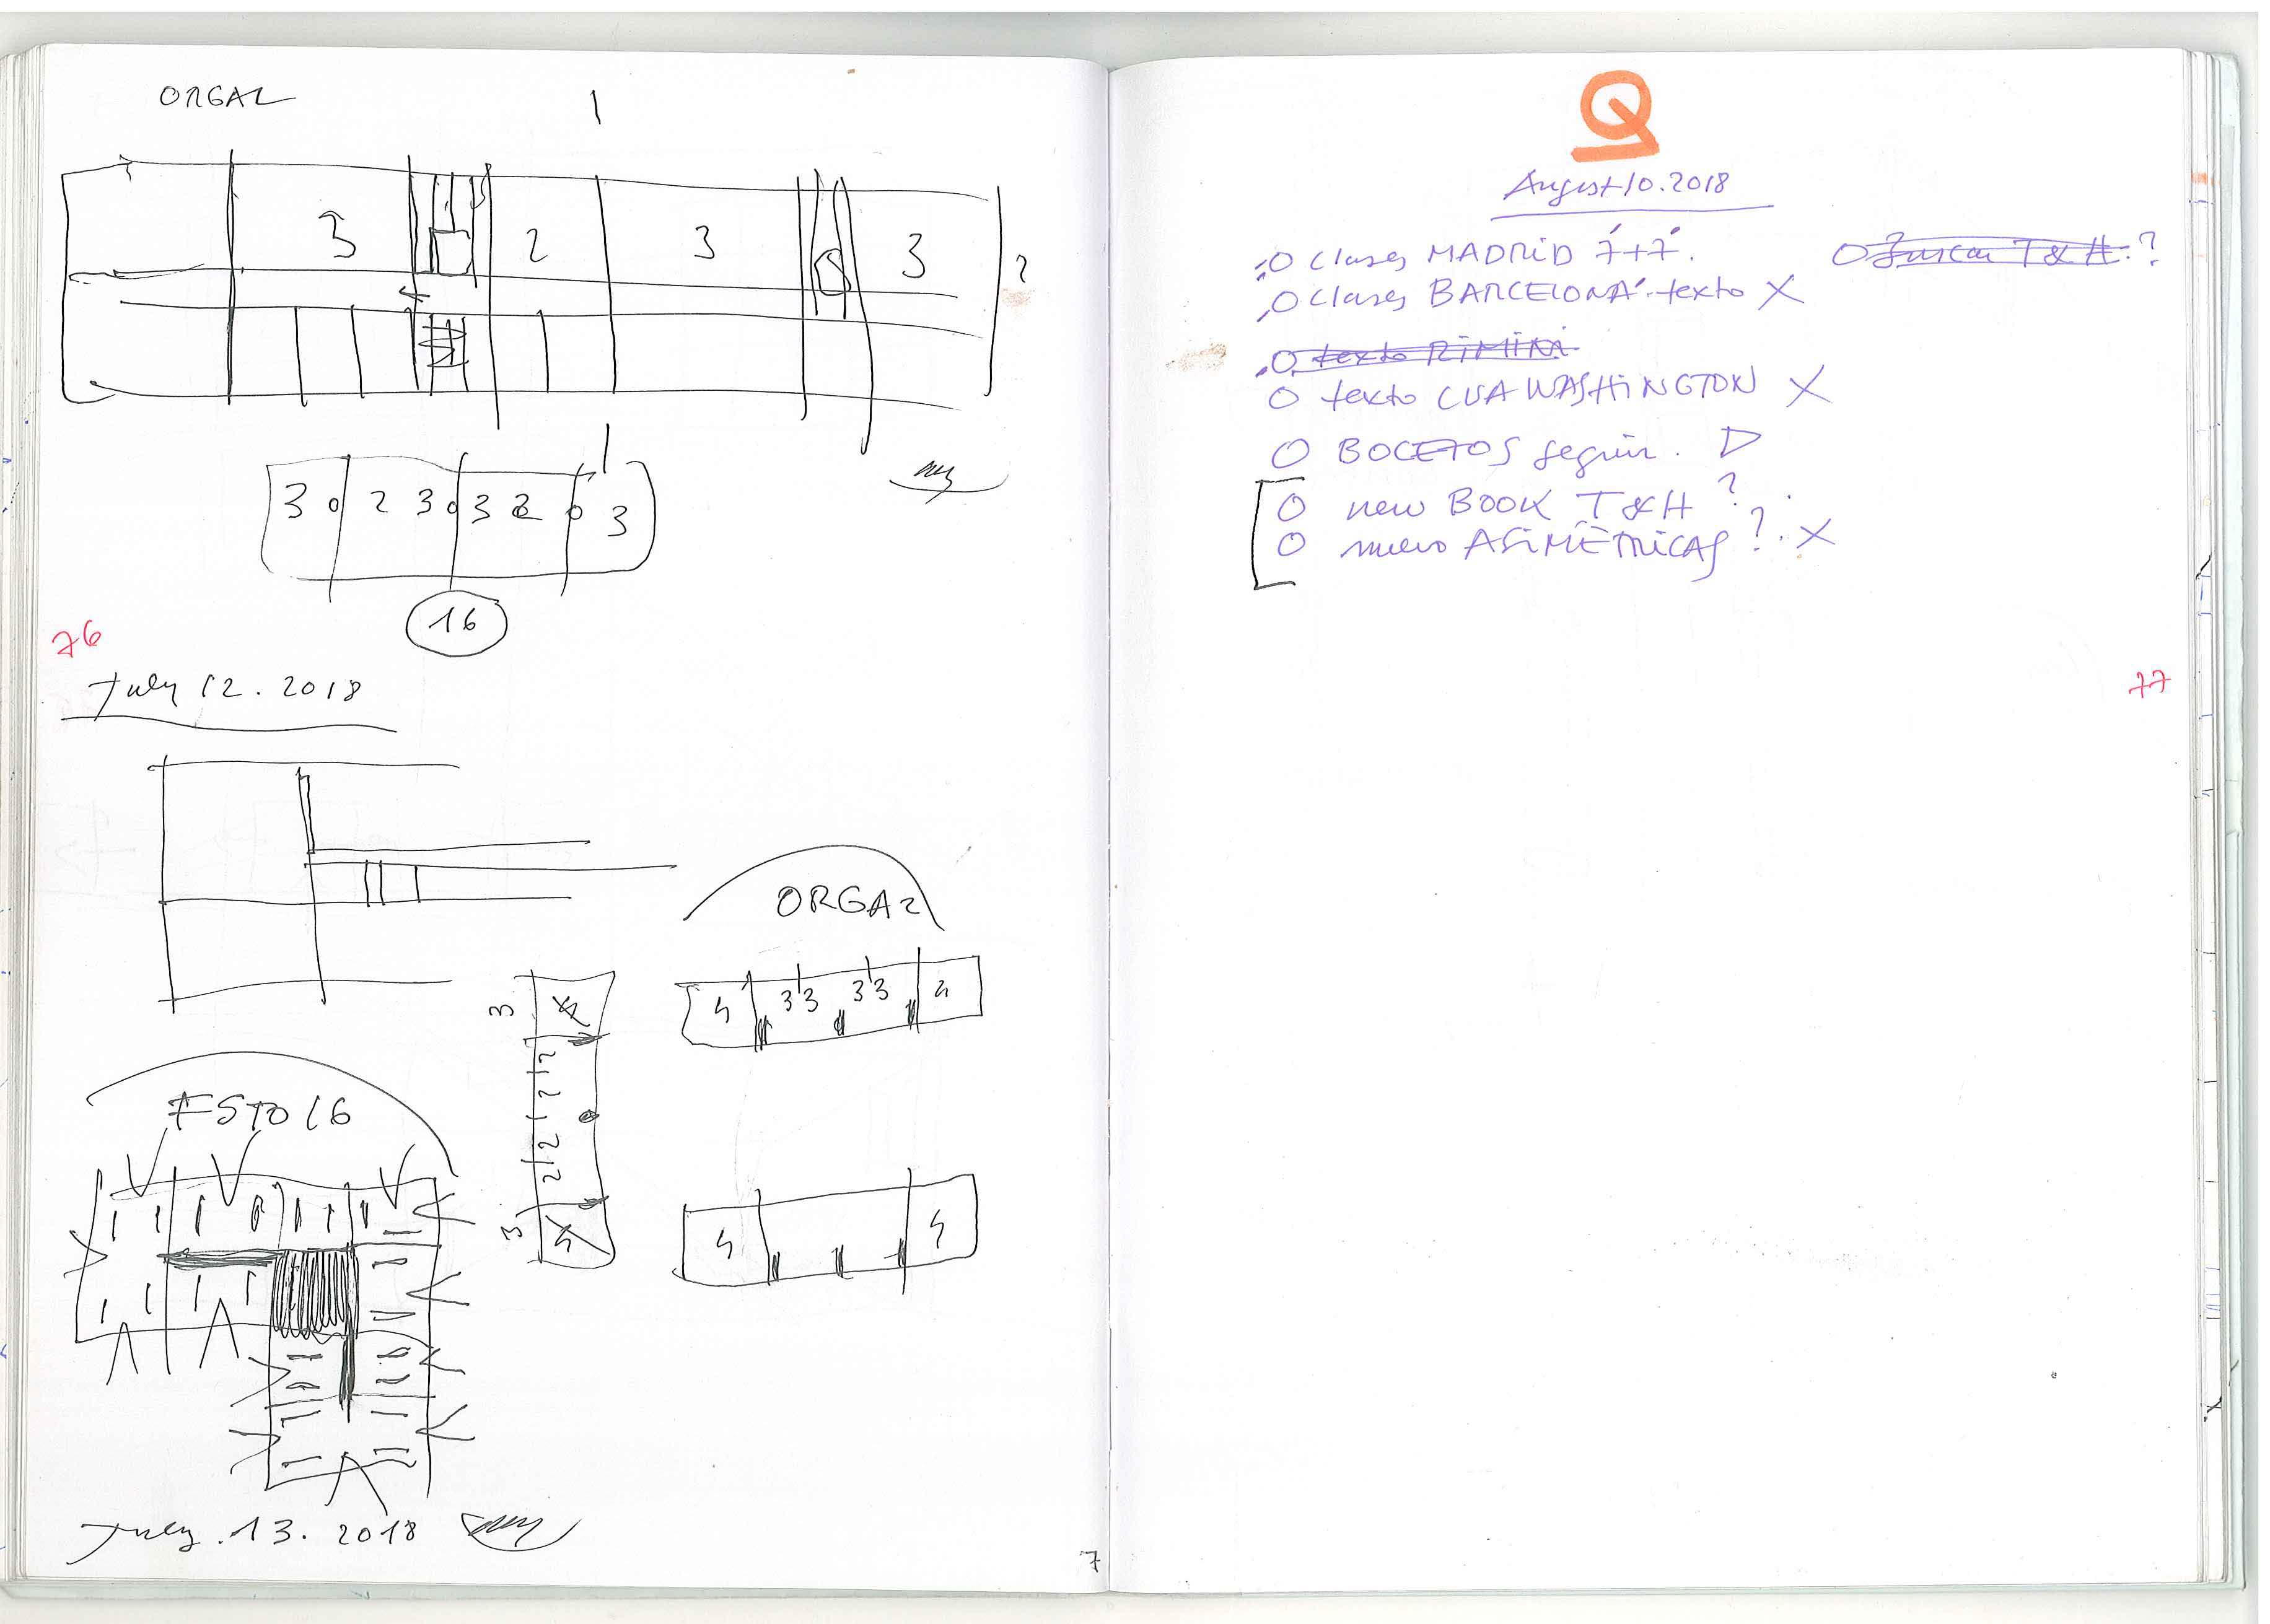 ORGAZ
1
3 2 3 3 2
3 2 3 3 2 3
16
76
July 12. 2018
ORGAZ
4 3 3 3 3 4
3 4
2
2
2
2
3 4
4 4
ESTO 16
July. 13. 2018
7
Q
August 10. 2018
O clases MADRID 7+7.
O clases BARCELONA texto X
O texto RIMINI
O texto CUA WASHINGTON X
O BOCETOS seguir.
O new BOOK T&H ?
O nuevo ASIMÉTRICAS ? X
O Buscar T&H ?
77